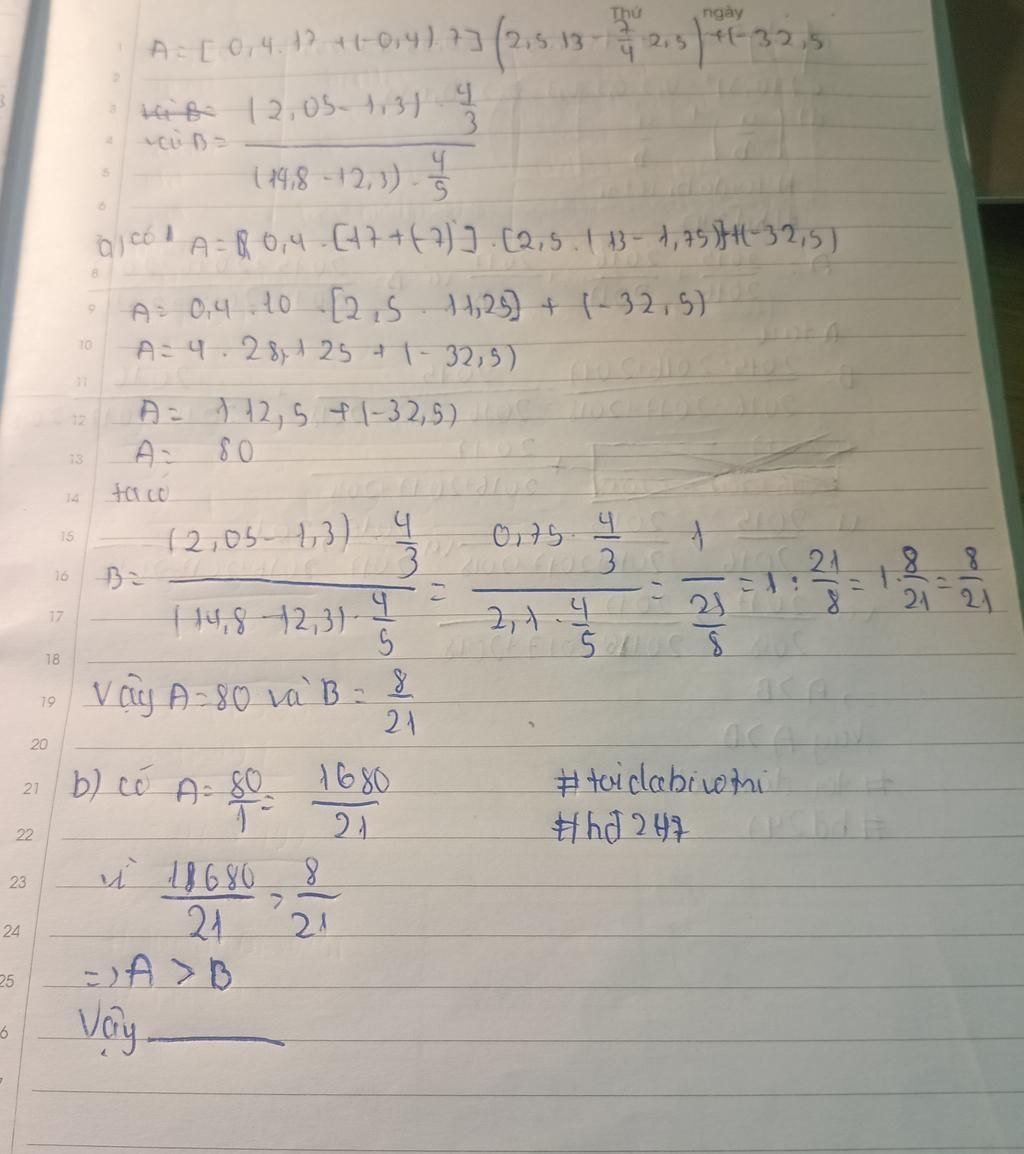 Thứ ngày
A = [ 0,4 . 17 + (-0,4) . 7 ] (2,5 . 13 - 7/4 . 2,5) + (-32,5
và B = (2,05 - 1,3) . 4/3 / (14,8 - 12,3) . 4/5
a) có A = 0,4 . [17 + (-7)] . [2,5 . (13 - 1,75)] + (-32,5)
A = 0,4 . 10 . [2,5 . 11,25] + (-32,5)
A = 4 . 28,125 + (-32,5)
A = 112,5 + (-32,5)
A = 80
ta có
B = (2,05 - 1,3) . 4/3 / (14,8 - 12,3) . 4/5 = 0,75 . 4/3 / 2,1 . 4/5 = 1 / 21/8 = 1 : 21/8 = 1 . 8/21 = 8/21
Vậy A = 80 và B = 8/21
b) có A = 80/1 = 1680/21 #toidabivotri
#hđ247
vì 1680/21 > 8/21
=> A > B
Vậy